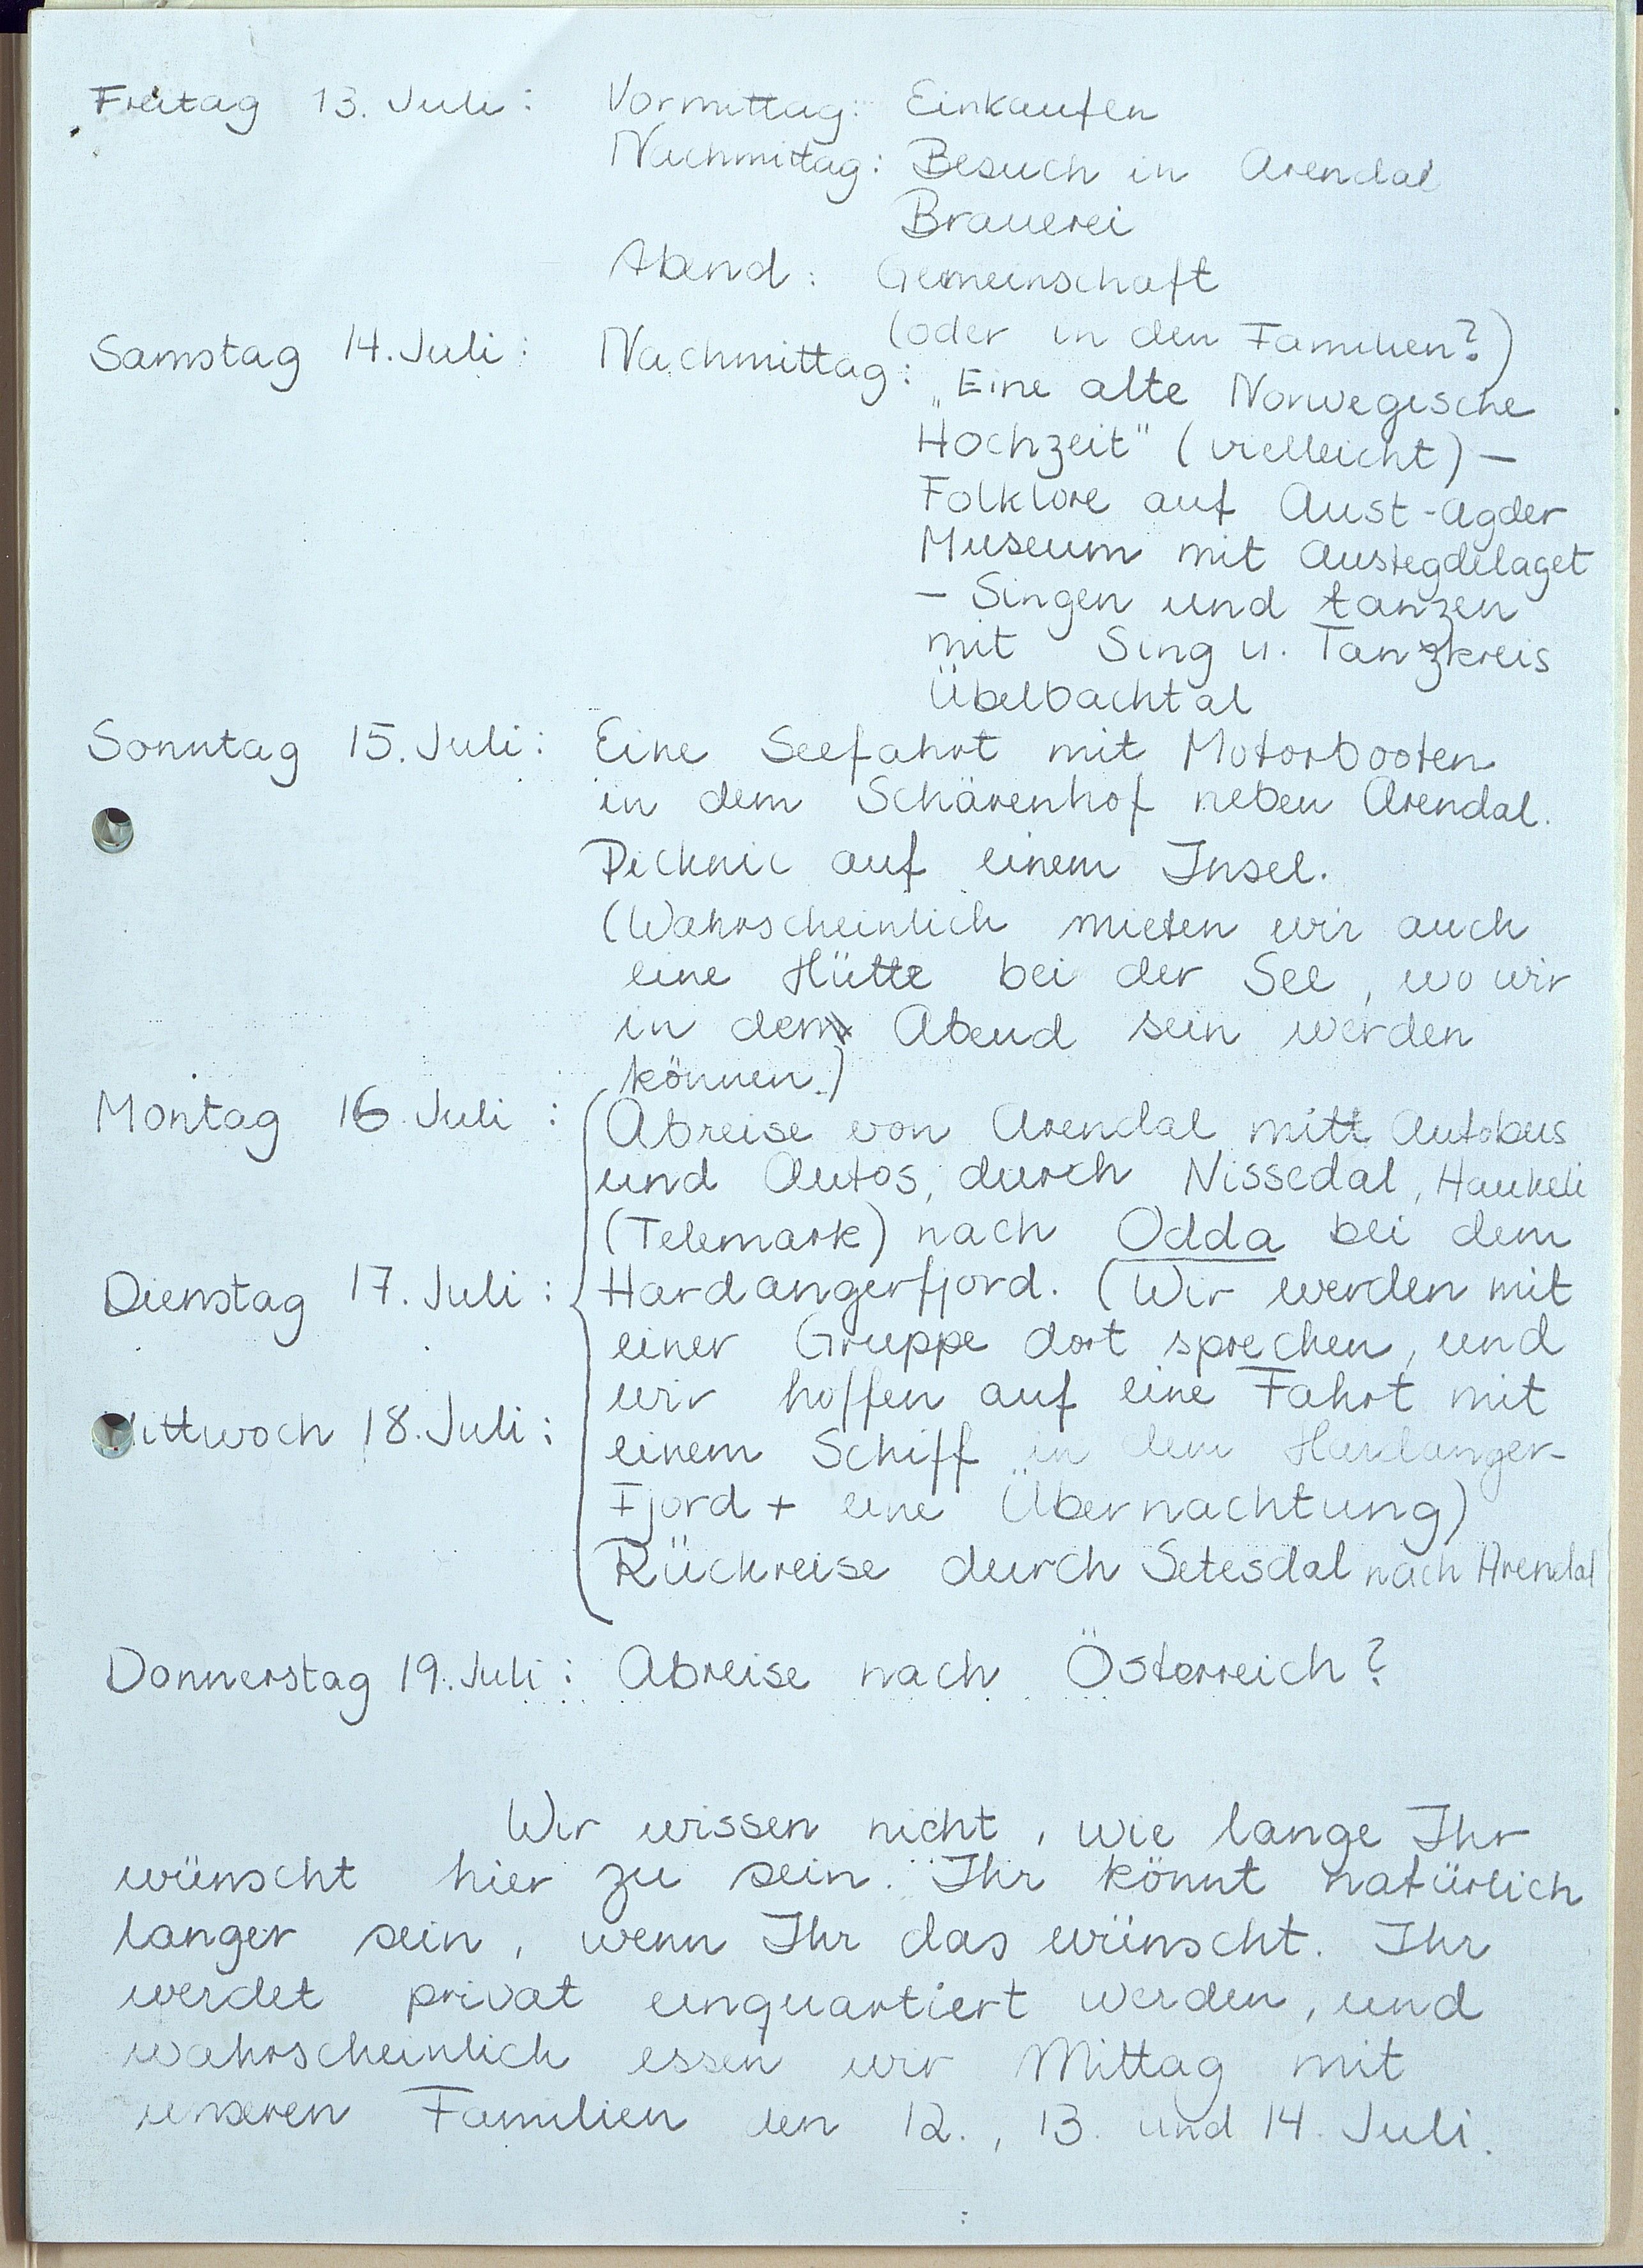 Freitag 13. Juli: Vormittag: Einkaufen
Nachmitag: Besuch in Arendal
Brauerei
Abend: Gemeinschaft
(oder in den Familien?)
Samstag 14. Juli: Nachmittag: „Eine alte Norwegische
Hochzeit" (vielleicht) –
Folklore auf Aust-Agder
Museum mit Austegdelaget
– Singen und tanzen
mit Sing u. Tanzkreis
Übelbachtal
Sonntag 15. Juli: Eine Seefahrt mit Motorbooten
in dem Schärenhof neben Arendal.
Picknic auf einem Insel.
(Wahrscheinlich mieten wir auch
eine Hütte bei der See, wo wir
in dem Abend sein werden
können.)
Montag 16. Juli: Abreise von Arendal mitt Autobus
und Autos, durch Nissedal, Haukeli
(Telemark) nach Odda bei dem
Dienstag 17. Juli: Hardangerfjord. (Wir werden mit
einer Gruppe dort sprechen, und
wir hoffen auf eine Fahrt mit
Mittwoch 18. Juli: einem Schiff in dem Hardanger-
Fjord + eine Übernachtung)
Rückreise durch Setesdal nach Arendal
Donnerstag 19. Juli: Abreise nach Österreich?
Wir wissen nicht, wie lange Ihr
wünscht hier zu sein. Ihr könnt natürlich
langer sein, wenn Ihr das wünscht. Ihr
werdet privat einquartiert werden, und
wahrscheinlich essen wir Mittag mit
unseren Familien den 12., 13. und 14. Juli.